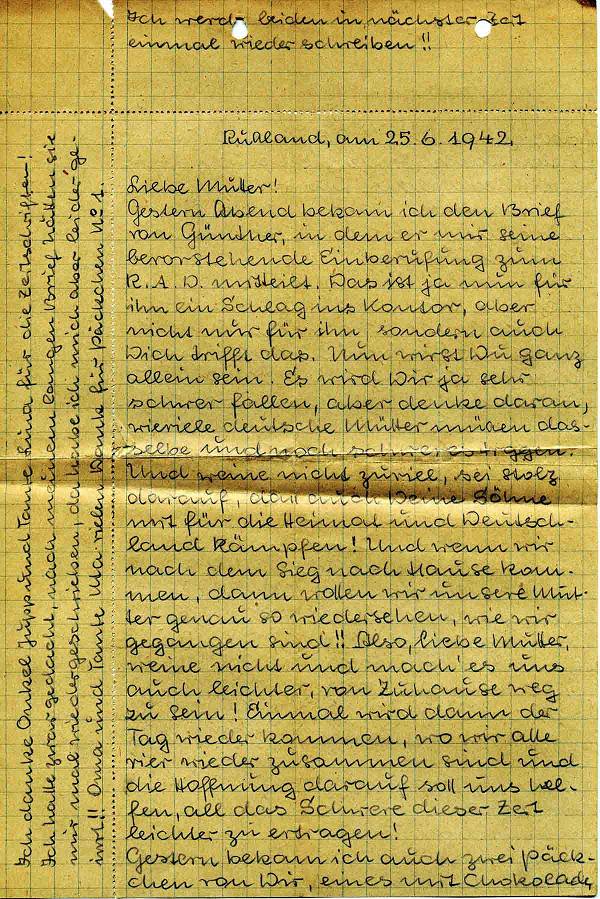 Ich werde beiden in nächster Zeit
einmal wieder schreiben!!
Rußland, am 25.6.1942.
Liebe Mutter!
Gestern Abend bekam ich den Brief
von Günther, in dem er mir seine
bevorstehende Einberufung zum
R.A.D. mitteilt. Das ist ja nun für
ihn ein Schlag ins Kontor, aber
nicht nur für ihn sondern auch
Dich trifft das. Nun wirst Du ganz
allein sein. Es wird Dir ja sehr
schwer fallen, aber denke daran,
wieviele deutsche Mütter müssen das-
selbe und noch schwereres tragen.
Und weine nicht zuviel, sei stolz
darauf, daß auch Deine Söhne
mit für die Heimat und Deutsch-
land kämpfen! Und wenn wir
nach dem Sieg nach Hause kom-
men, dann wollen wir unsere Mut-
ter genau so wiedersehen, wie wir
gegangen sind!! Also, liebe Mutter,
weine nicht und mach' es uns
auch leichter, von Zuhause weg
zu sein! Einmal wird dann der
Tag wieder kommen, wo wir alle
vier wieder zusammen sind und
die Hoffnung darauf soll uns hel-
fen, all das Schwere dieser Zeit
leichter zu ertragen!
Gestern bekam ich auch zwei Päck-
chen von Dir, eines mit Chokolade,
Ich danke Onkel Jupp und Tante Lina für die Zeitschriften!
Ich hatte zwar gedacht, nach meinem langen Brief hätten sie
mir mal wiedergeschrieben, da habe ich mich aber leider ge-
irrt!! Oma und Tante Uta vielen Dank für Päckchen No 1.